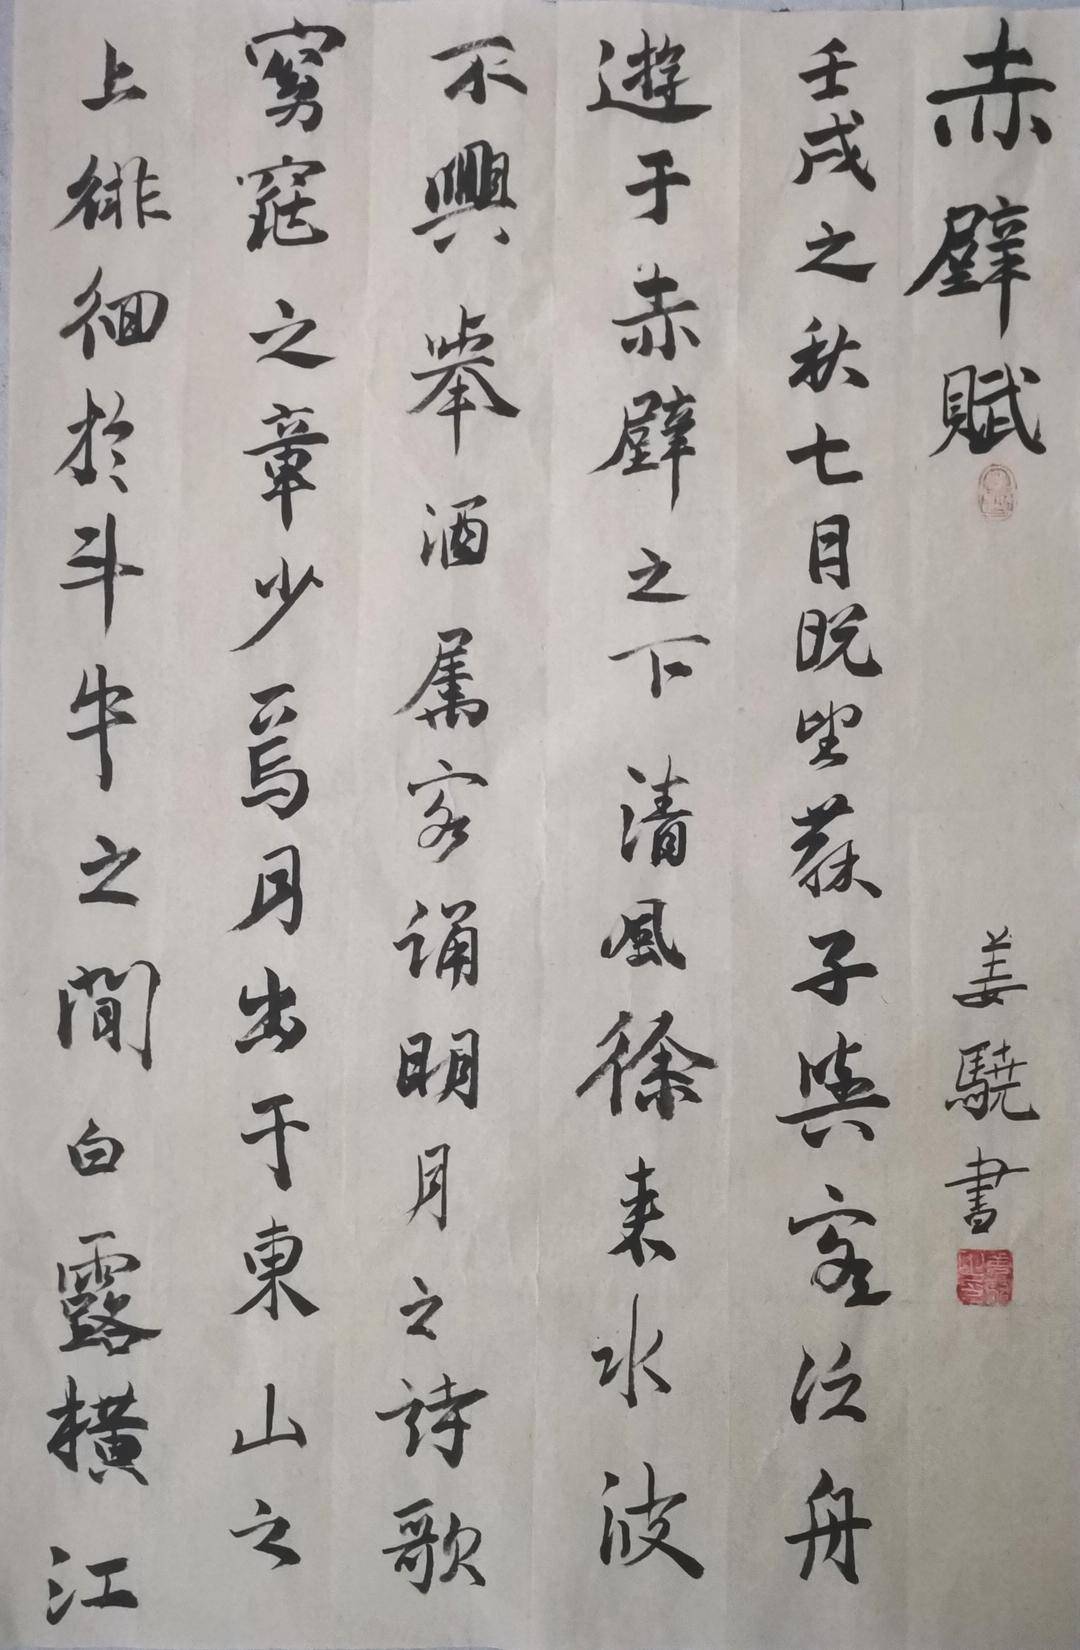 赤壁賦
姜驍書
壬戌之秋七月既望蘇子與客泛舟
遊于赤壁之下清風徐来水波
不興舉酒属客誦明月之詩歌
窈窕之章少焉月出于東山之
上徘徊於斗牛之間白露橫江